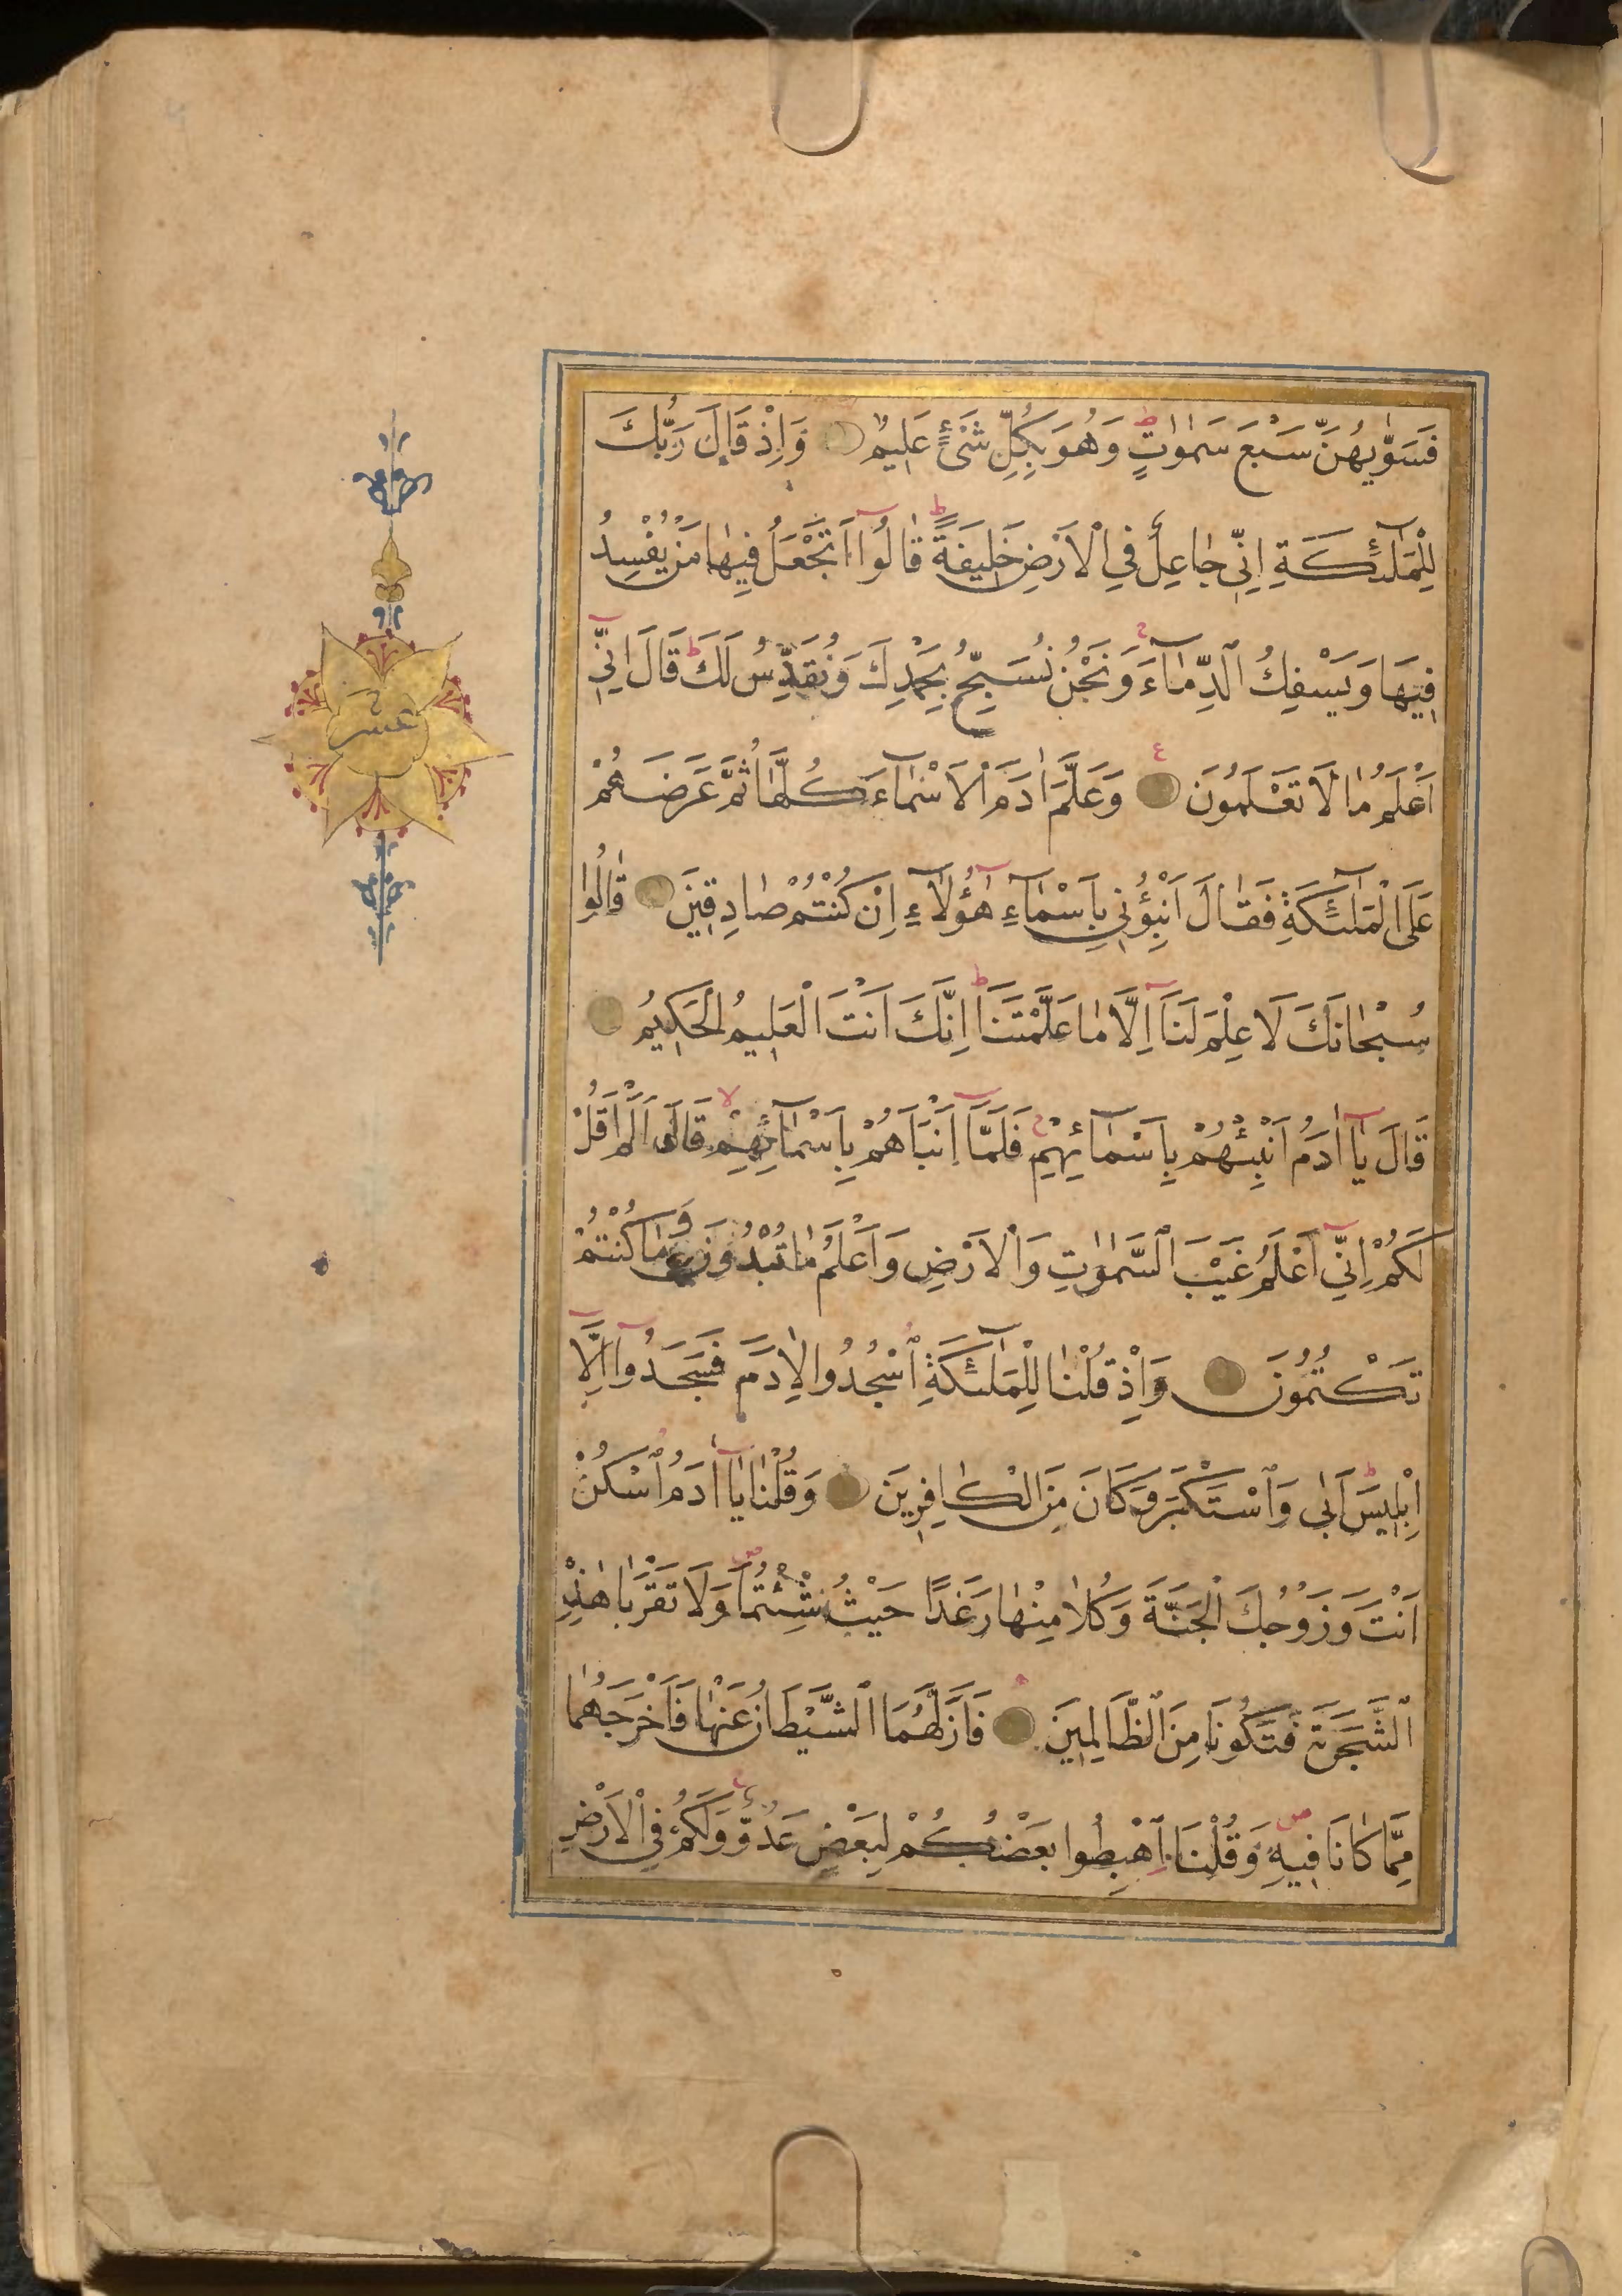 فَسَوّٰيهُنَّ سَبْعَ سَمٰوٰاتٍ ط وَهُوَ بِكُلِّ شَیْءٍ عَلِيمٌ وَاِذْ قَالَ رَبُّكَ
لِلْمَلٰٓئِكَةِ اِنِّي جٰاعِلٌ فِي الْاَرْضِ خَلِيفَةً ط قٰالُوٓا اَتَجْعَلُ فِيهٰا مَنْ يُفْسِدُ
فِيهَا وَيَسْفِكُ الدِّمٰٓاءَ ج وَنَحْنُ نُسَبِّحُ بِحَمْدِكَ وَنُقَدِّسُ لَكَ ط قَالَ اِنِّيٓ
اَعْلَمُ مٰا لَا تَعْلَمُونَ ع وَعَلَّمَ اٰدَمَ الْاَسْمٰٓاءَ كُلَّهٰا ثُمَّ عَرَضَهُمْ
عَلَى الْمَلٰٓئِكَةِ فَقٰالَ اَنْبِؤُنِي بِاَسْمٰٓاءِ هٰٓؤُلٰٓاءِ اِنْ كُنْتُمْ صٰادِقِينَ قٰالُوا
سُبْحٰانَكَ لَا عِلْمَ لَنَٓا اِلَّا مٰا عَلَّمْتَنَا ط اِنَّكَ اَنْتَ الْعَلِيمُ الْحَكِيمُ
قَالَ يٰٓا اٰدَمُ اَنْبِئْهُمْ بِاَسْمٰٓائِهِمْ ج فَلَمَّٓا اَنْبَاَهُمْ بِاَسْمٰٓائِهِمْ لا قَالَ اَلَمْ اَقُلْ
لَكُمْ اِنِّيٓ اَعْلَمُ غَيْبَ السَّمٰوٰاتِ وَالْاَرْضِ وَاَعْلَمُ مٰا تُبْدُونَ وَمٰا كُنْتُمْ
تَكْتُمُونَ وَاِذْ قُلْنٰا لِلْمَلٰٓئِكَةِ اسْجُدُوا لِاٰدَمَ فَسَجَدُوٓا اِلَّٓا
اِبْلِيسَ ط اَبٰى وَاسْتَكْبَرَ وَكَانَ مِنَ الْكٰافِرِينَ وَقُلْنٰا يٰٓا اٰدَمُ اسْكُنْ
اَنْتَ وَزَوْجُكَ الْجَنَّةَ وَكُلٰا مِنْهٰا رَغَدًا حَيْثُ شِئْتُمَا ص وَلَا تَقْرَبٰا هٰذِهِ
الشَّجَرَةَ فَتَكُونَا مِنَ الظَّالِمِينَ فَاَزَلَّهُمَا الشَّيْطَانُ عَنْهٰا فَاَخْرَجَهُمٰا
مِمَّا كٰانَا فِيهِ ص وَقُلْنَا اهْبِطُوا بَعْضُكُمْ لِبَعْضٍ عَدُوٌّ ج وَلَكُمْ فِي الْاَرْضِ
عشر